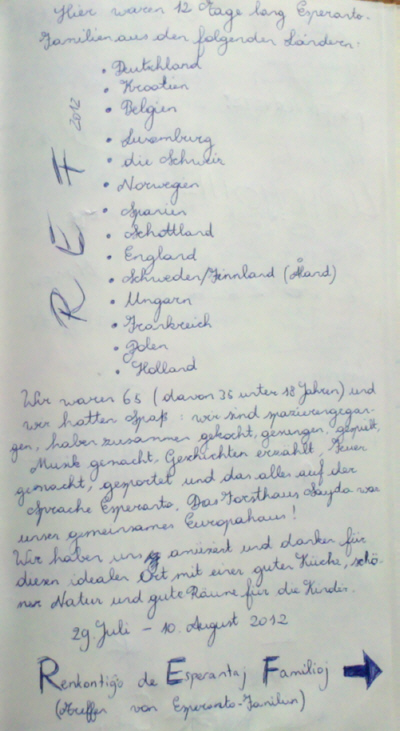 Hier waren 12 Tage lang Esperanto-
Familien aus den folgenden Ländern:
• Deutschland
• Kroatien
• Belgien
• Luxemburg
• die Schweiz
• Norwegen
• Spanien
• Schottland
• England
• Schweden/Finnland (Åland)
• Ungarn
• Frankreich
• Polen
• Holland
REF 2012
Wir waren 65 (davon 35 unter 18 Jahren) und
wir hatten Spaß: wir sind spazierengegan-
gen, haben zusammen gekocht, gesungen, gespielt,
Musik gemacht, Geschichten erzählt, Feuer
gemacht, gesportet und das alles auf der
Sprache Esperanto. Das Forsthaus Sayda war
unser gemeinsames Europahaus!
Wir haben uns amüsiert und danken für
diesen idealen Ort mit einer guten Küche, schö-
ner Natur und gute Räume für die Kinder.
29. Juli – 10. August 2012
Renkontiĝo de Esperantaj Familioj
(Treffen von Esperanto-Familien)